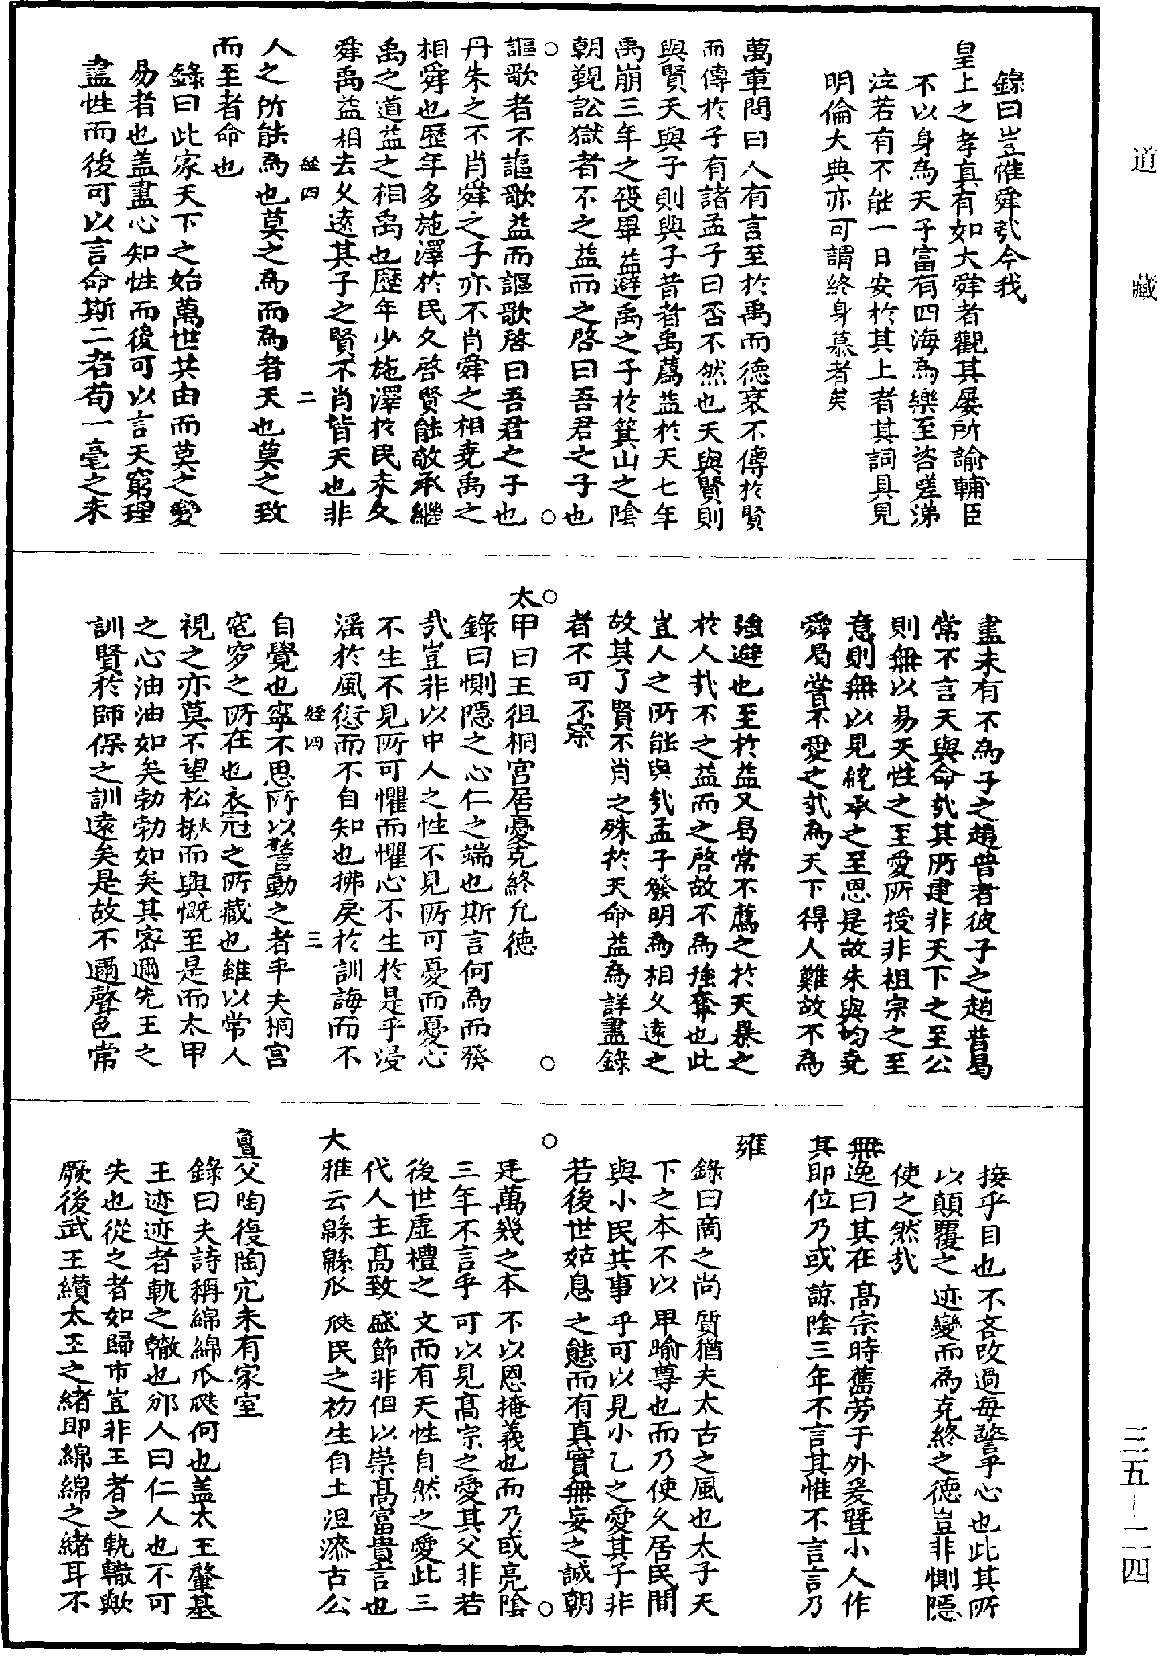 道藏
錄曰豈惟舜哉今我
皇上之孝真有如大舜者觀其屢所諭輔臣
不以身為天子富有四海為樂至咨嗟涕
泣若有不能一日安於其上者其詞具見
明倫大典亦可謂終身慕者矣
萬章問曰人有言至於禹而德衰不傳於賢
而傳於子有諸孟子曰否不然也天與賢則
與賢天與子則與子昔者禹薦益於天七年
禹崩三年之喪畢益避禹之子於箕山之陰
朝覲訟獄者不之益而之啓曰吾君之子也
謳歌者不謳歌益而謳歌啓曰吾君之子也
丹朱之不肖舜之子亦不肖舜之相堯禹之
相舜也歷年多施澤於民久啓賢能敬承繼
禹之道益之相禹也歷年少施澤於民未久
舜禹益相去久遠其子之賢不肖皆天也非
經四 二
人之所能為也莫之為而為者天也莫之致
而至者命也
錄曰此家天下之始萬世共由而莫之變
易者也蓋盡心知性而後可以言天窮理
盡性而後可以言命斯二者苟一毫之未
盡未有不為子之趙普者彼子之趙普曷
常不言天與命哉其所建非天下之至公
則無以易天性之至愛所授非祖宗之至
意則無以見統承之至恩是故朱與均堯
舜曷嘗不愛之哉為天下得人難故不為
強避也至於益又曷常不薦之於天暴之
於人哉不之益而之啓故不為強奪也此
豈人之所能與哉孟子發明為相久遠之
故其了賢不肖之殊於天命益為詳盡錄
者不可不察
太甲曰王徂桐宮居憂克終允德
錄曰惻隱之心仁之端也斯言何為而發
哉豈非以中人之性不見所可憂而憂心
不生不見所可懼而懼心不生於是乎浸
淫於風愆而不自知也拂戾於訓誨而不
經四 三
自覺也寧不思所以警動之者乎夫桐宮
窀穸之所在也衣冠之所藏也雖以常人
視之亦莫不望松楸而興慨至是而太甲
之心油油如矣勃勃如矣其密邇先王之
訓賢於師保之訓遠矣是故不邇聲色常
接乎目也不吝改過每警乎心也此其所
以顛覆之迹變而為克終之德豈非惻隱
使之然哉
無逸曰其在高宗時舊勞于外爰暨小人作
其即位乃或諒陰三年不言其惟不言言乃
雍
錄曰商之尚質猶夫太古之風也太子天
下之本不以卑喻尊也而乃使久居民間
與小民共事乎可以見小乙之愛其子非
若後世姑息之態而有真實無妄之誠朝
廷萬幾之本不以恩掩義也而乃或亮陰
三年不言乎可以見高宗之愛其父非若
後世虛禮之文而有天性自然之愛此三
代人主高致盛節非但以崇高富貴言也
大雅云緜緜瓜瓞民之初生自土沮漆古公
亶父陶復陶穴未有家室
錄曰夫詩稱綿綿瓜瓞何也蓋太王肇基
王迹迹者軌之轍也邠人曰仁人也不可
失也從之者如歸市豈非王者之軌轍歟
厥後武王纘太王之緒即綿綿之緒耳不
三五—二四